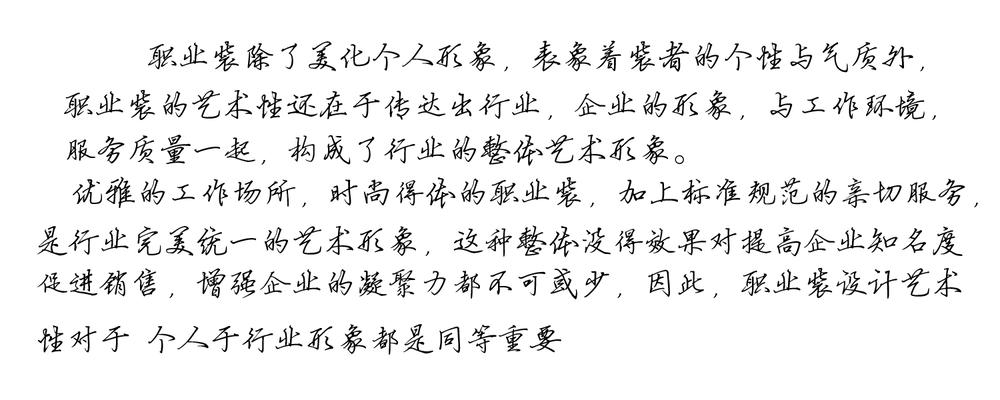 职业装除了美化个人形象，表象着装者的个性与气质外，
职业装的艺术性还在于传达出行业，企业的形象，与工作环境，
服务质量一起，构成了行业的整体艺术形象。
优雅的工作场所，时尚得体的职业装，加上标准规范的亲切服务，
是行业完美统一的艺术形象，这种整体没得效果对提高企业知名度
促进销售，增强企业的凝聚力都不可或少，因此，职业装设计艺术
性对于 个人于行业形象都是同等重要